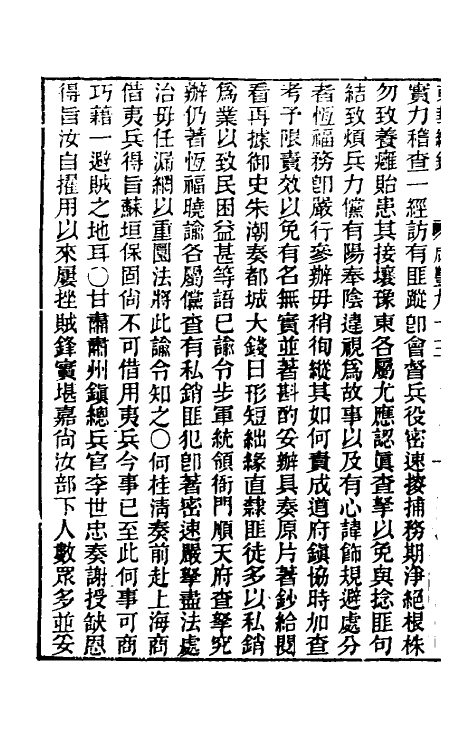 實力稽查一經訪有匪蹤卽會督兵役密速掩捕務期淨絕根株
勿致養癰貽患其接壤豫東各屬尤應認眞查拏以免與捻匪句
結致煩兵力儻有陽奉陰違視爲故事以及有心諱飾規避處分
者恆福務卽嚴行參辦毋稍徇縱其如何責成道府鎭協時加查
考予限責效以免有名無實並著斟酌妥辦具奏原片著鈔給閱
看再據御史朱潮奏都城大錢日形短絀緣直隸匪徒多以私銷
爲業以致民困益甚等語已諭令步軍統領衙門順天府查拏究
辦仍著恆福曉諭各屬儻查有私銷匪犯卽著密速嚴拏盡法處
治毋任漏網以重圜法將此諭令知之○何桂淸奏前赴上海商
借夷兵得旨蘇垣保固尙不可借用夷兵今事已至此何事可商
巧藉一避賊之地耳○甘肅肅州鎭總兵官李世忠奏謝授缺恩
得旨汝自擢用以來屢挫賊鋒實堪嘉尙汝部下人數眾多並妥